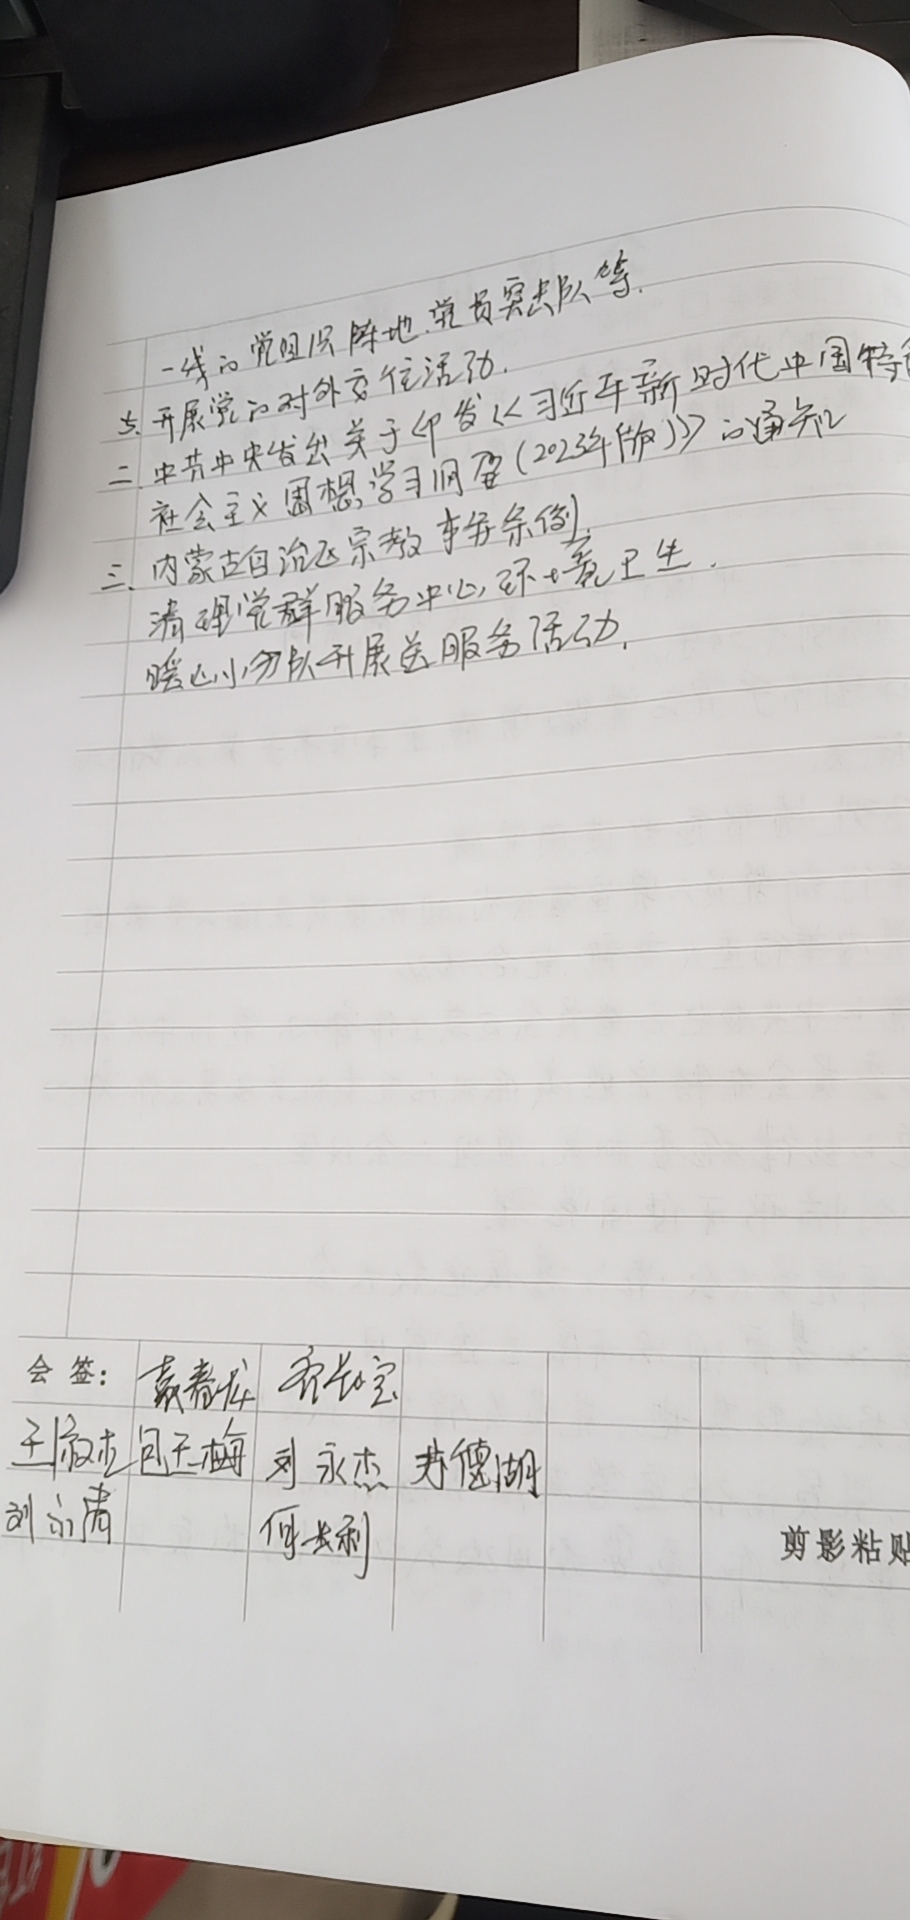 一线的党组织阵地.党员突击队等.
七.开展党的对外交往活动.
二.中共中央发出关于印发《习近平新时代中国特色
社会主义思想学习纲要(2023年版)》的通知
三.内蒙古自治区宗教事务条例.
清理党群服务中心,环境卫生.
暖心小分队开展送服务活动.
会签: 袁春龙
包玉梅 刘永杰
刘永清 何长利
剪影粘贴